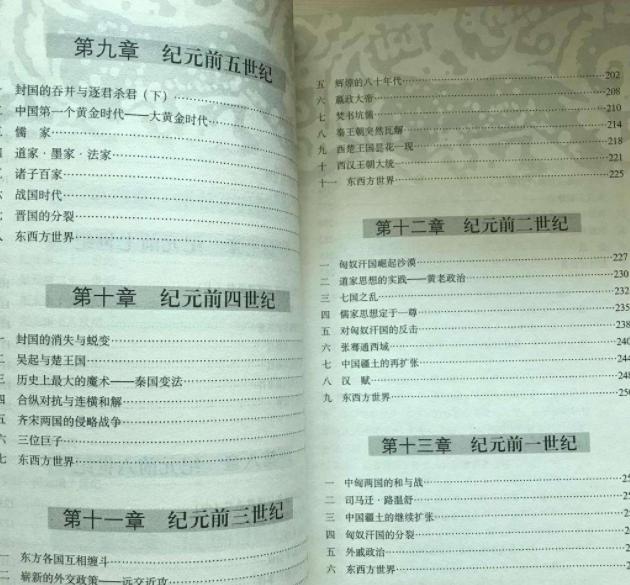 第九章 纪元前五世纪
一 封国的吞并与逐君杀君（下）
二 中国第一个黄金时代——大黄金时代
三 儒 家
四 道家·墨家·法家
五 诸子百家
六 战国时代
七 晋国的分裂
八 东西方世界
第十章 纪元前四世纪
一 封国的消失与蜕变
二 吴起与楚王国
三 历史上最大的魔术——秦国变法
四 合纵对抗与连横和解
五 齐宋两国的侵略战争
六 三位巨子
七 东西方世界
第十一章 纪元前三世纪
一 东方各国互相缠斗
二 崭新的外交政策——远交近攻
五 辉煌的八十年代 202
六 嬴政大帝 208
七 焚书坑儒 210
八 秦王朝突然瓦解 214
九 西楚王国昙花一现 218
十 西汉王朝大统 221
十一 东西方世界 225
第十二章 纪元前二世纪
一 匈奴汗国崛起沙漠 227
二 道家思想的实践——黄老政治 230
三 七国之乱 232
四 儒家思想定于一尊 235
五 对匈奴汗国的反击 238
六 张骞通西域 240
七 中国疆土的再扩张 244
八 汉 赋 248
九 东西方世界 250
第十三章 纪元前一世纪
一 中匈两国的和与战
二 司马迁·路温舒
三 中国疆土的继续扩张
四 匈奴汗国的分裂
五 外戚政治
六 东西方世界